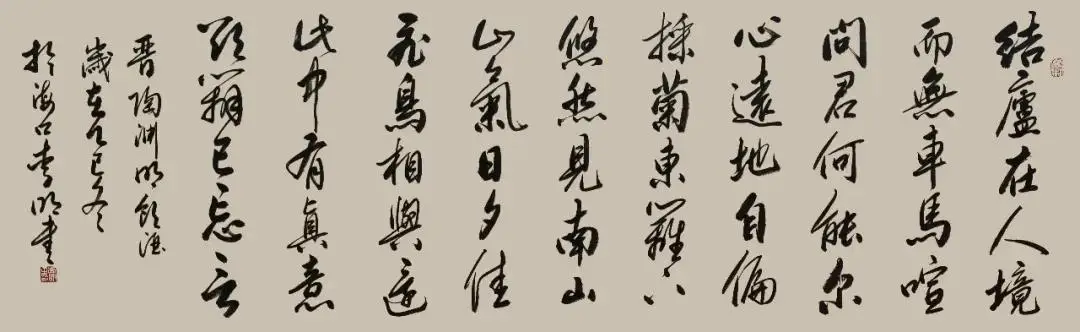 結廬在人境
而無車馬喧
問君何能尔
心遠地自偏
採菊東籬下
悠然見南山
山氣日夕佳
飛鳥相與還
此中有真意
欲辨已忘言
晉陶淵明飲酒
歲在乙巳冬
於海口李明書